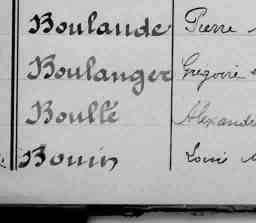 Boulaude Pierre
Boulanger Gregoire
Boullé Alexandre
Bouin Louis